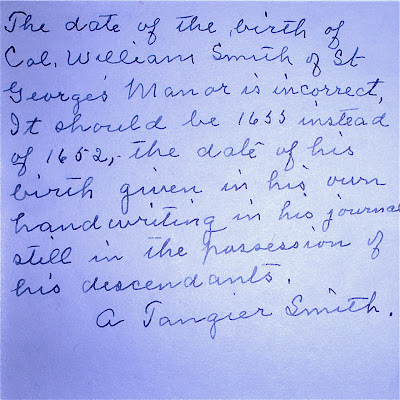 The date of the birth of
Col. William Smith of St
George's Manor is incorrect,
It should be 1655 instead
of 1652,- the date of his
birth given in his own
handwriting in his journal
still in the possession of
his descendants.
A Tangier Smith.